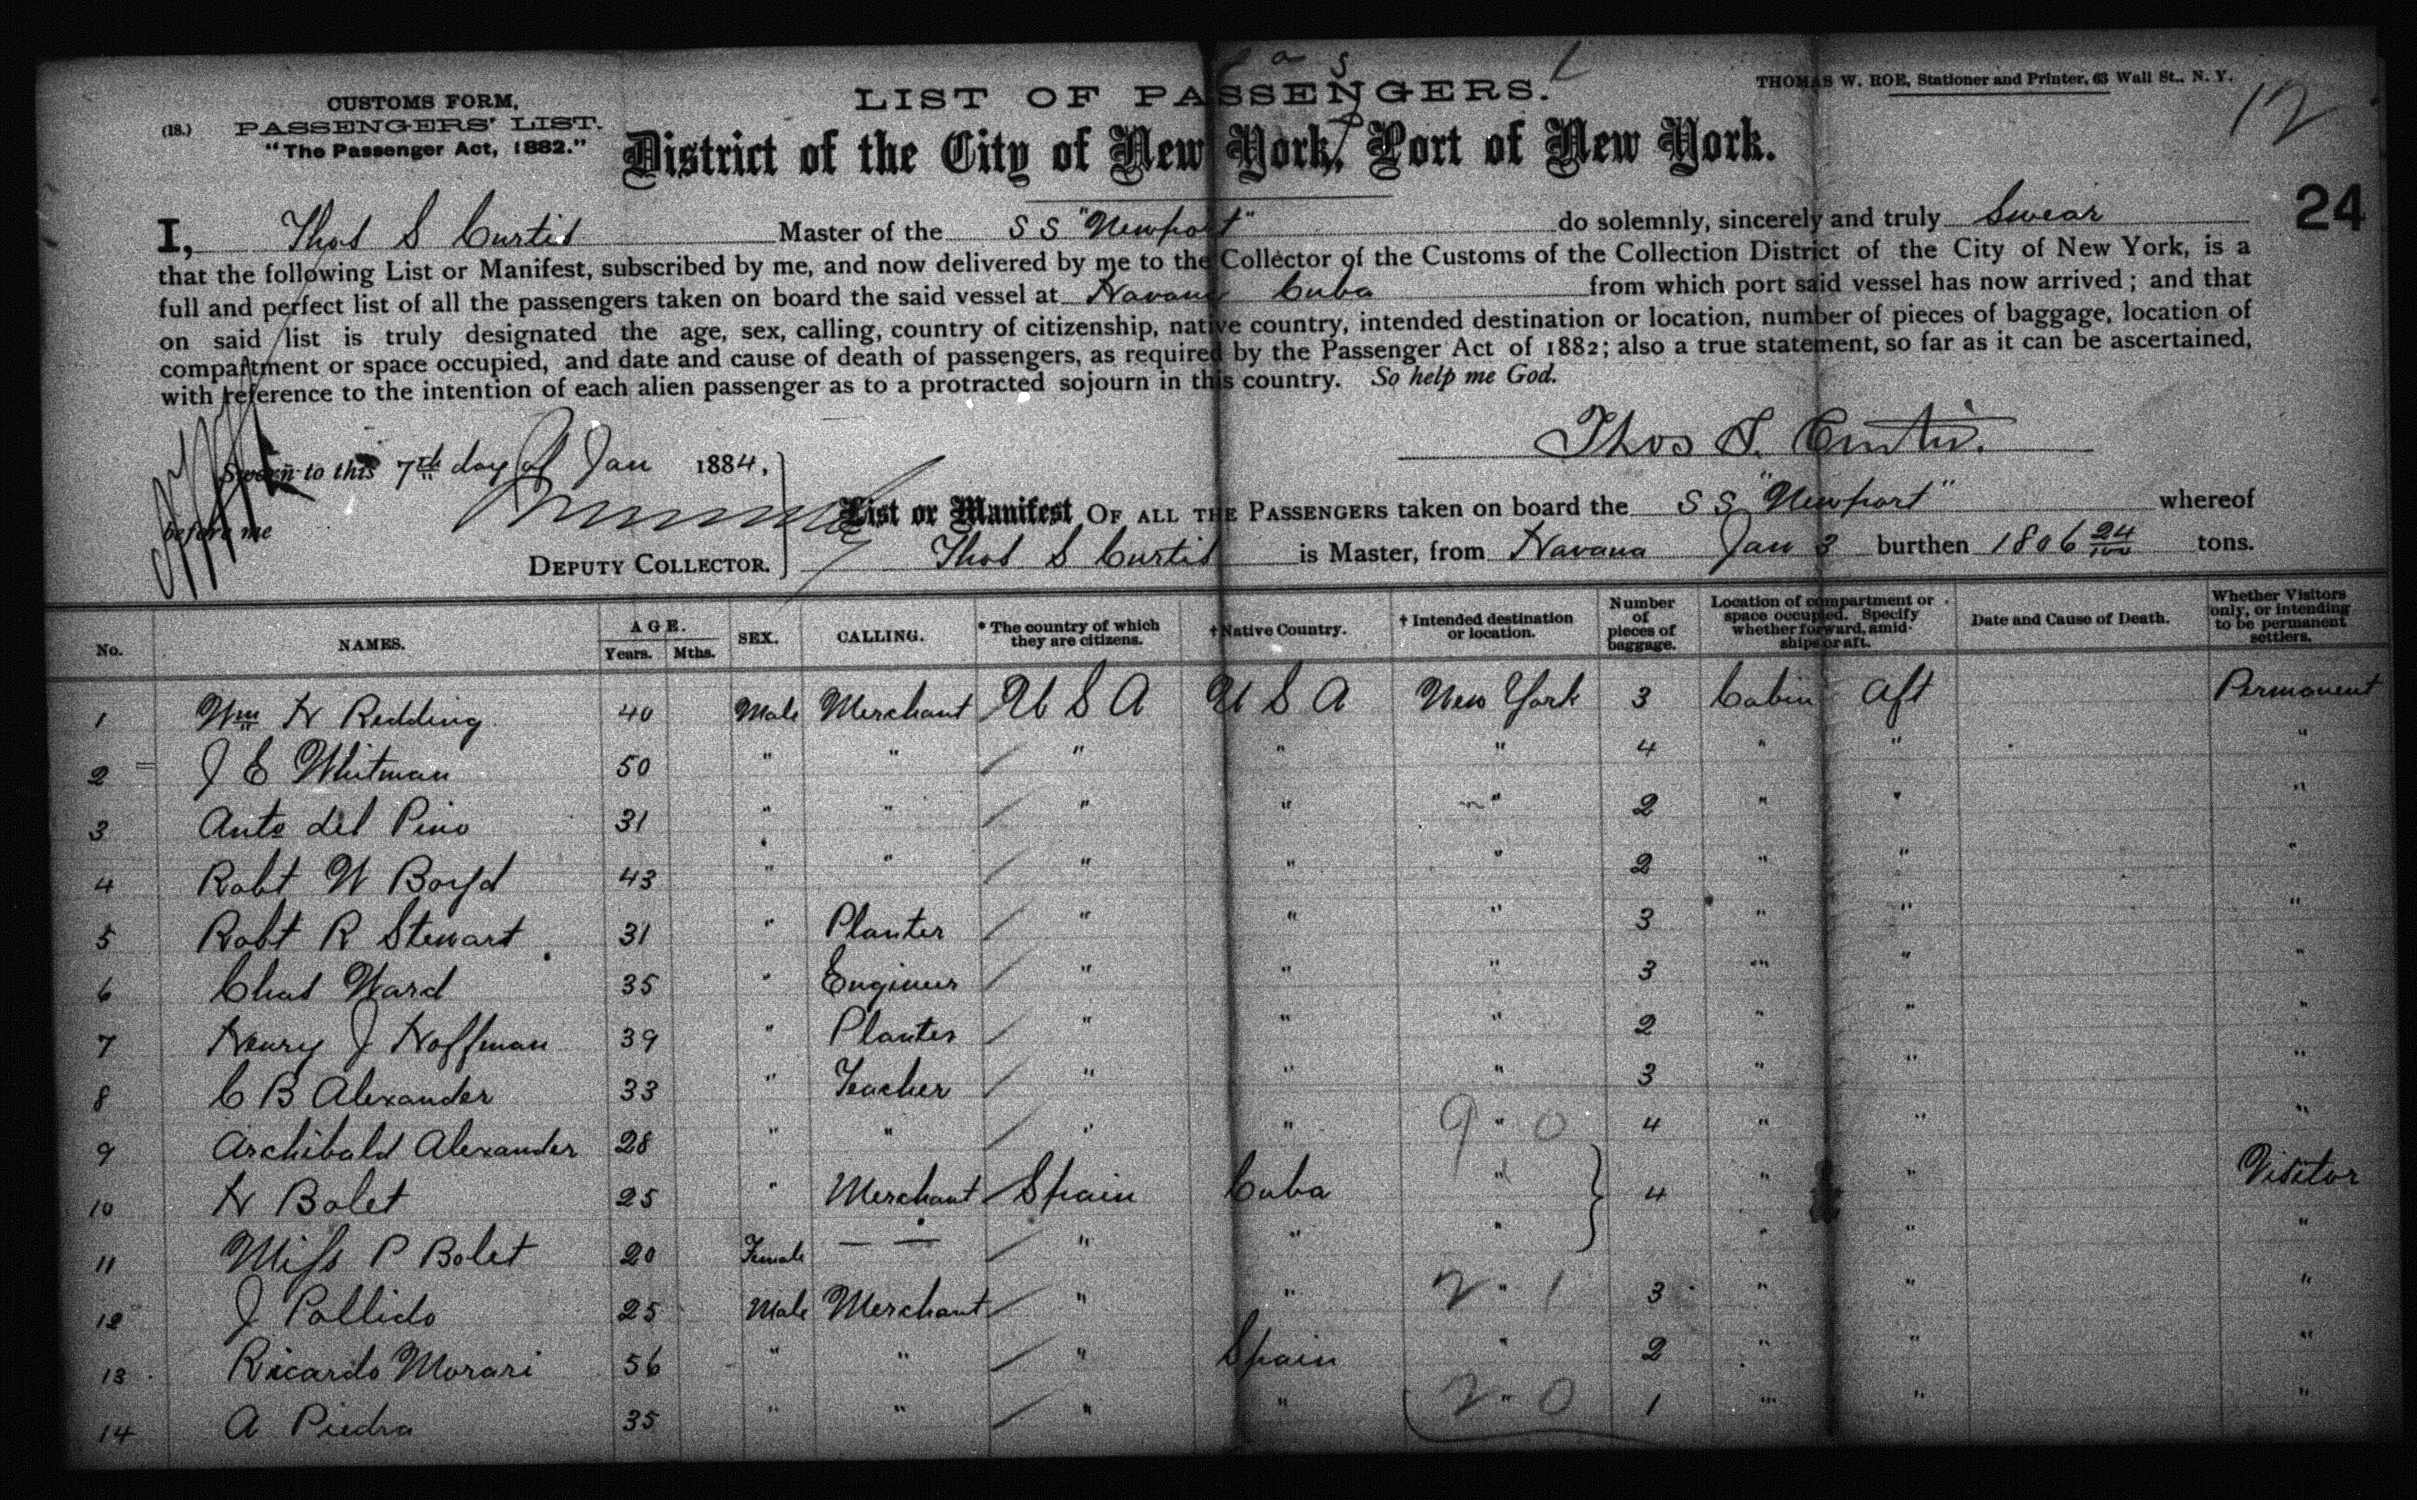 CUSTOMS FORM,
(18.) PASSENGERS' LIST.
"The Passenger Act, 1882."
LIST OF PASSENGERS.
THOMAS W. ROE, Stationer and Printer, 63 Wall St., N. Y.
12
District of the City of New York, Port of New York.
24
I, Thos S Curtis Master of the S S "Newport" do solemnly, sincerely and truly Swear
that the following List or Manifest, subscribed by me, and now delivered by me to the Collector of the Customs of the Collection District of the City of New York, is a
full and perfect list of all the passengers taken on board the said vessel at Havana Cuba from which port said vessel has now arrived; and that
on said list is truly designated the age, sex, calling, country of citizenship, native country, intended destination or location, number of pieces of baggage, location of
compartment or space occupied, and date and cause of death of passengers, as required by the Passenger Act of 1882; also a true statement, so far as it can be ascertained,
with reference to the intention of each alien passenger as to a protracted sojourn in this country. So help me God.
Thos S. Curtis.
Sworn to this 7th day of Jan 1884,
before me
DEPUTY COLLECTOR.
List or Manifest OF ALL THE PASSENGERS taken on board the S S "Newport" whereof
Thos S Curtis is Master, from Havana Jan 3 burthen 1806 24/100 tons.
No. NAMES. AGE. Years. Mths. SEX. CALLING. * The country of which they are citizens. † Native Country. † Intended destination or location. Number of pieces of baggage. Location of compartment or space occupied. Specify whether forward, amidships or aft. Date and Cause of Death. Whether Visitors only, or intending to be permanent settlers.
1 Wm H Redding 40 Male Merchant U S A U S A New York 3 Cabin Aft Permanent
2 J E Whitman 50 " " " " " 4 " " "
3 Anto del Pino 31 " " " " " 2 " " "
4 Robt W Boyd 43 " " " " " 2 " " "
5 Robt R Stewart 31 " Planter " " " 3 " " "
6 Chas Ward 35 " Engineer " " " 3 " " "
7 Henry J Hoffman 39 " Planter " " " 2 " " "
8 C B Alexander 33 " Teacher " " " 3 " " "
9 Archibald Alexander 28 " " " " 9 " 0 4 " " "
10 H Bolet 25 " Merchant Spain Cuba " 4 " " Visitor
11 Miss P Bolet 20 Female — — " " " " " "
12 J Pollido 25 Male Merchant " " 2 " 1 3 " " "
13 Ricardo Morari 56 " " " Spain " 2 " " "
14 A Piedra 35 " " " " 2 " 0 1 " " "